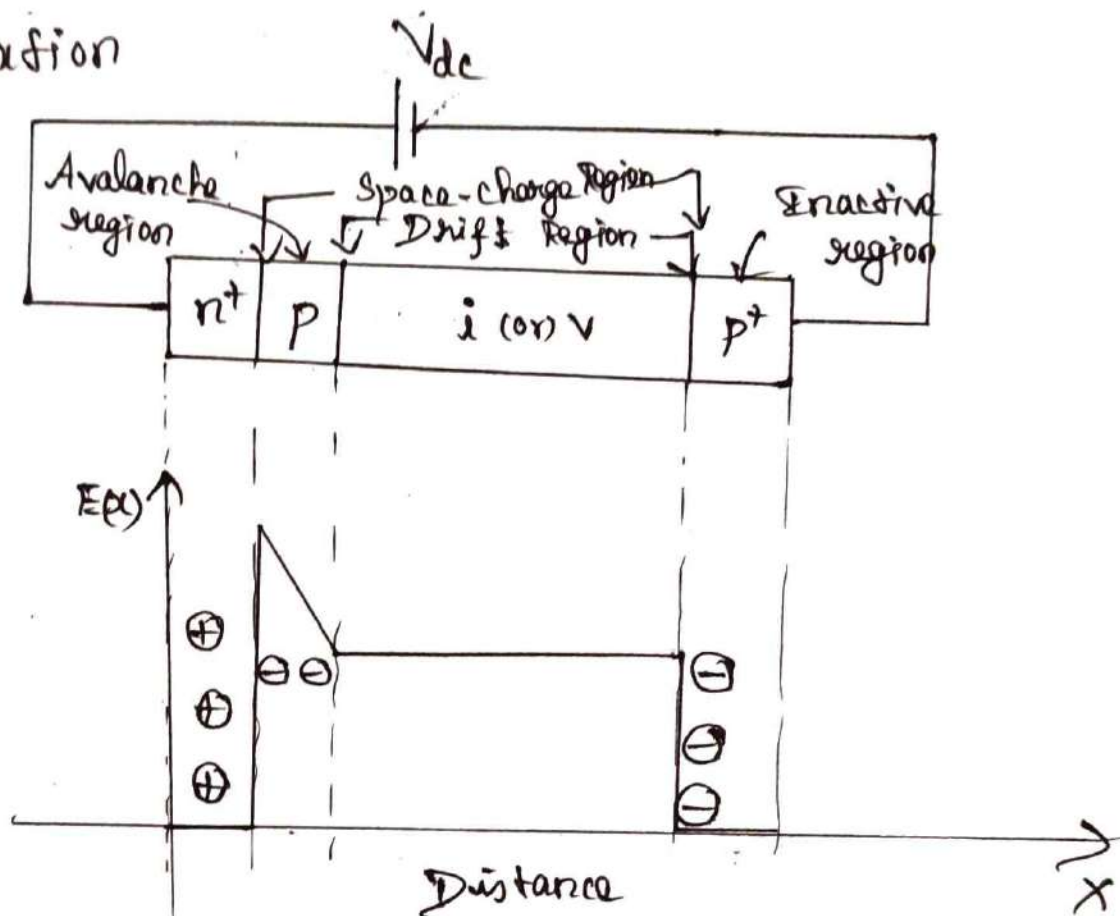 Vdc
Avalanche region
Space-charge Region
Drift Region
Inactive region
n+ p i (or) v p+
E(x)
⊕ ⊖ ⊖ ⊖
⊕ ⊖
⊕ ⊖
Distance
X